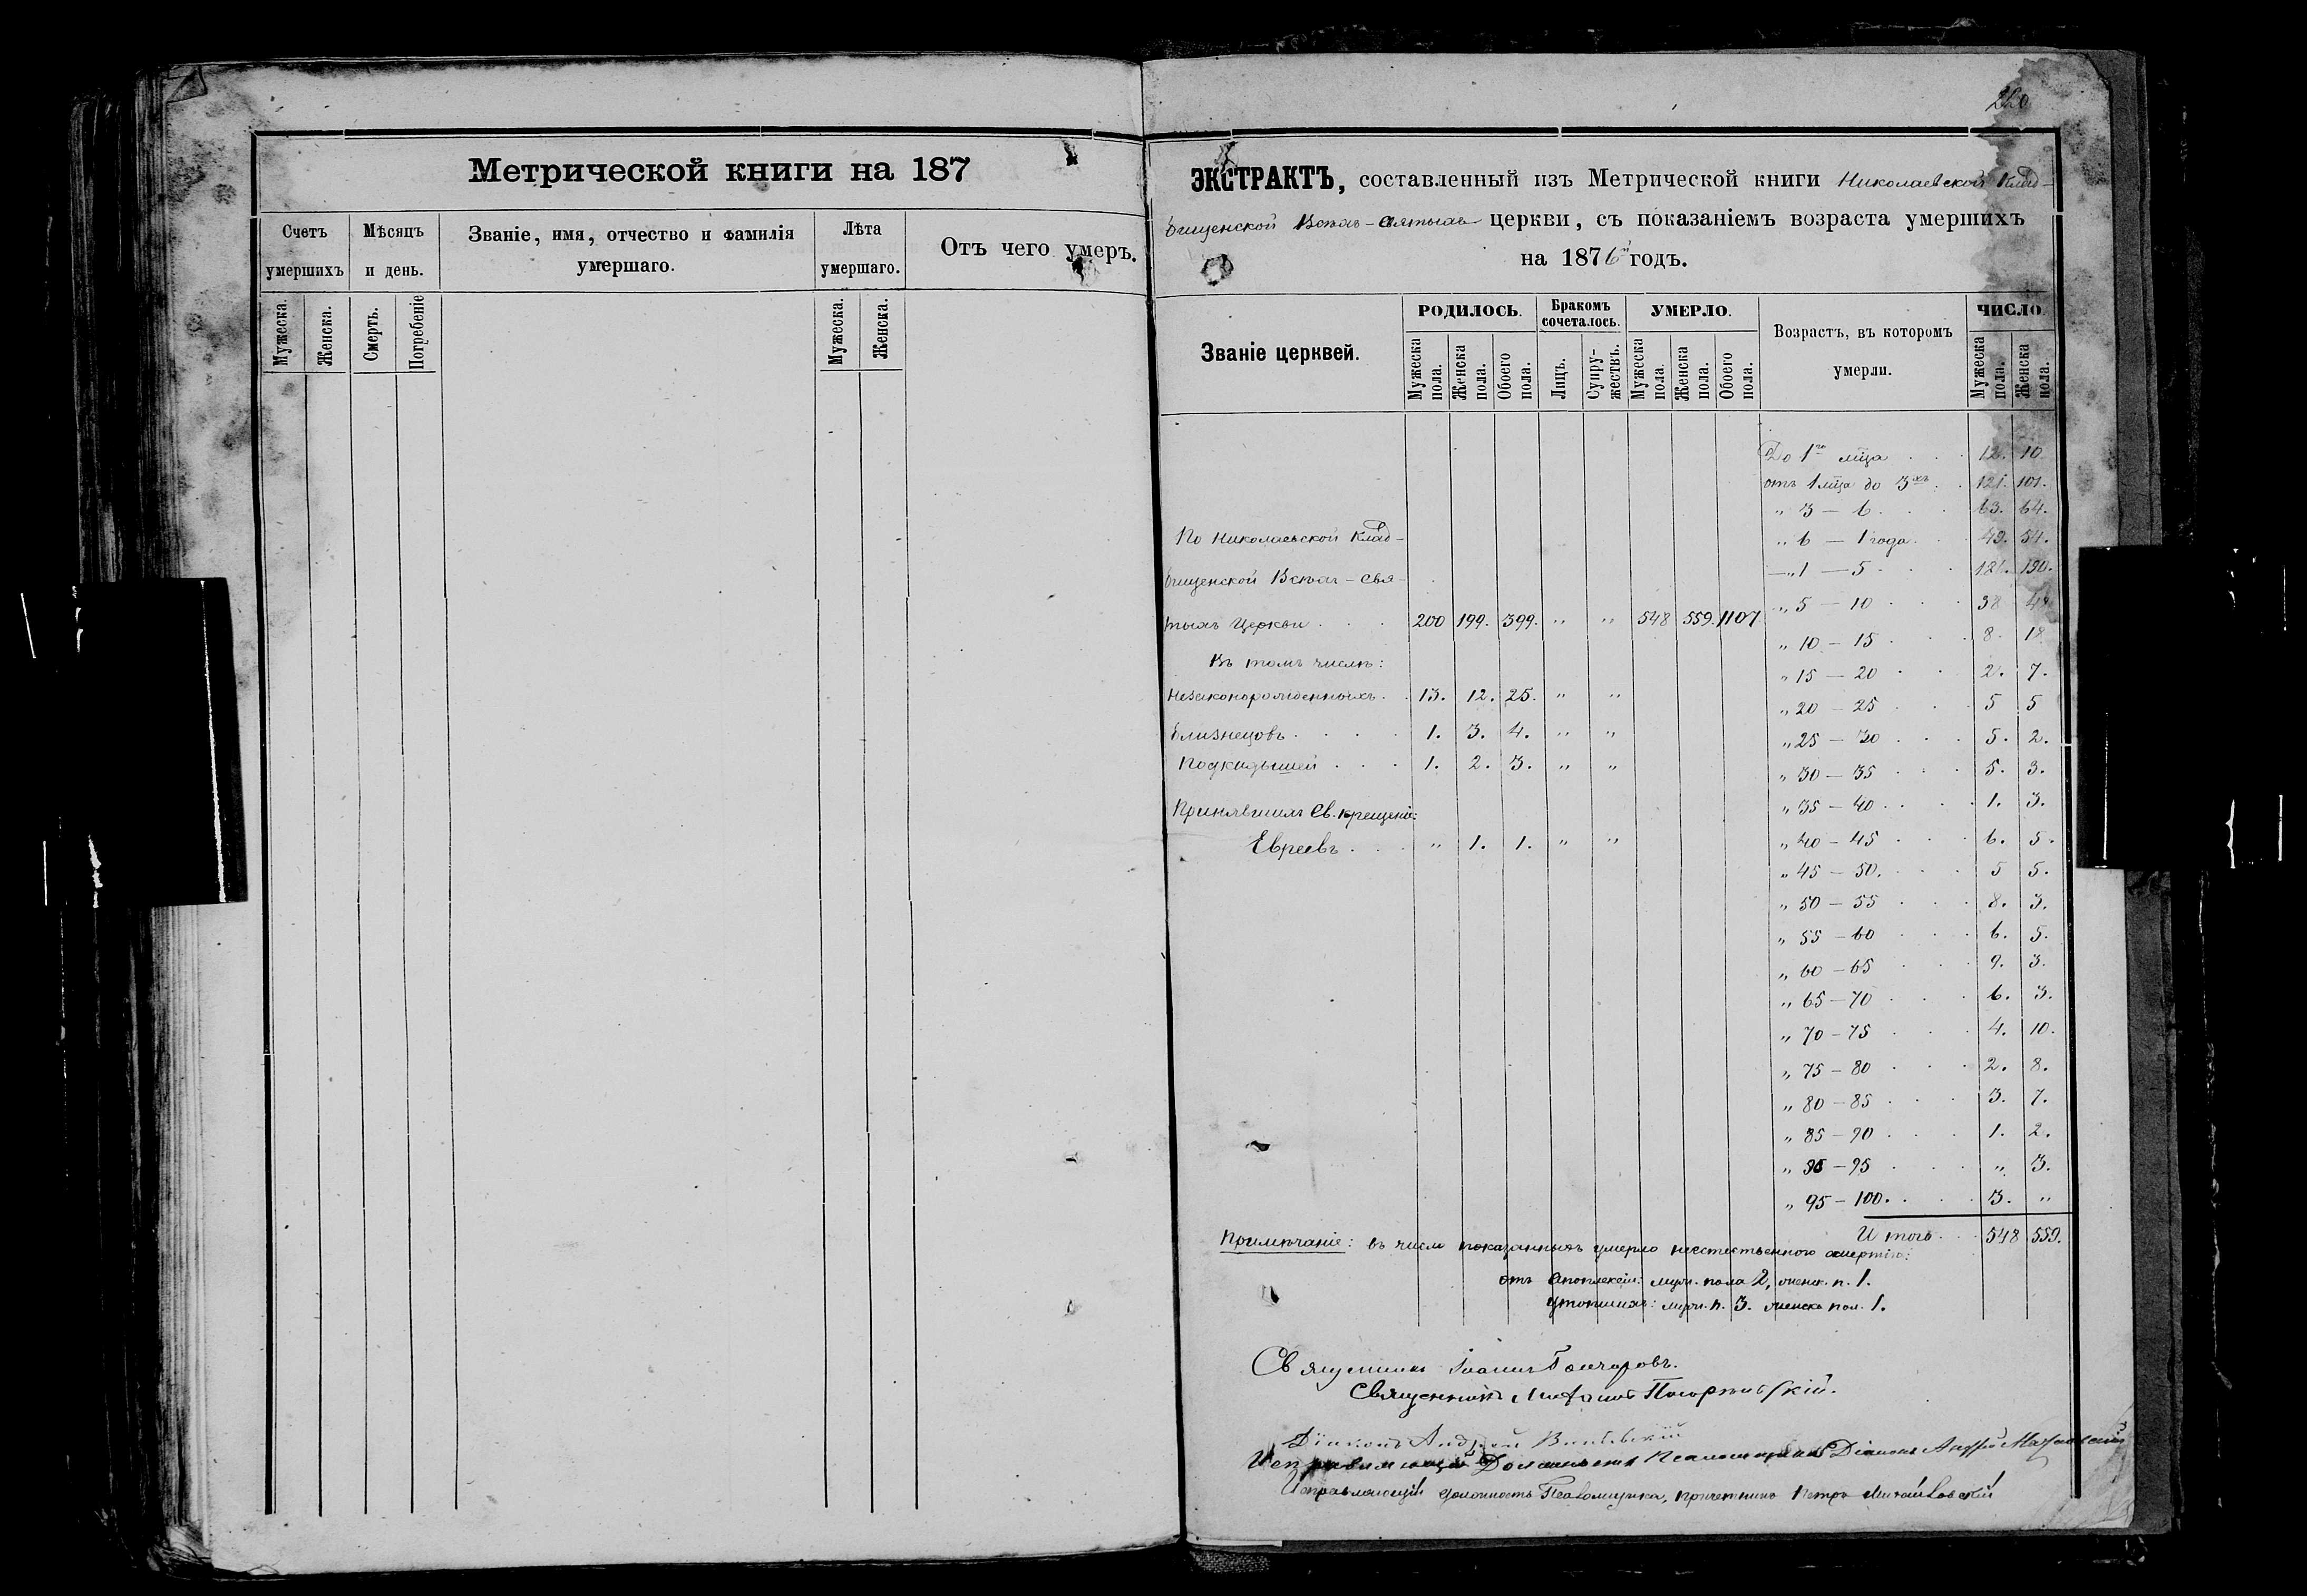 Метрической книги на 187
Счетъ умершихъ
Мѣсяцъ и день.
Званіе, имя, отчество и фамилія умершаго.
Лѣта умершаго.
Отъ чего умеръ.
Мужеска.
Женска.
Смерть.
Погребеніе
Мужеска.
Женска.
ЭКСТРАКТЪ, составленный изъ Метрической книги Николаевской Клад-
бищенской Всѣхъ-Святыхъ церкви, съ показаніемъ возраста умершихъ
на 1876 годъ.
Званіе церквей.
РОДИЛОСЬ.
Бракомъ сочеталось.
УМЕРЛО.
Возрастъ, въ которомъ умерли.
ЧИСЛО.
Мужеска пола.
Женска пола.
Обоего пола.
Лицъ.
Супру-жествъ.
Мужеска пола.
Женска пола.
Обоего пола.
Мужеска пола.
Женска пола.
По Николаевской Клад-
бищенской Всѣхъ-Свя-
тыхъ Церкви . . . 200 199. 399. " " 548 559. 1107
Въ томъ числѣ:
незаконорожденныхъ . . 13. 12. 25. " "
близнецовъ . . . . 1. 3. 4. " "
Подкидышей . . . 1. 2. 3. " "
Принявшихъ Св. крещеніе:
Евреевъ . . . " 1. 1. " "
До 1го мца . . . 12. 10
отъ 1 мца до 3хъ . . 121. 101.
" 3 — 6 . . . 63. 64.
" 6 — 1 года . . . 49. 54.
" 1 — 5 . . . 190.
" 5 — 10 . . . 38
" 10 — 15 . . . 8. 18
" 15 — 20 . . . 2. 7.
" 20 — 25 . . . 5 5
" 25 — 30 . . . 5. 2.
" 30 — 35 . . . 5. 3.
" 35 — 40 . . . 1. 3.
" 40 — 45 . . . 6. 5.
" 45 — 50 . . . 5 5.
" 50 — 55 . . . 8. 3.
" 55 — 60 . . . 6. 5.
" 60 — 65 . . . 9. 3.
" 65 — 70 . . . 6. 3.
" 70 — 75 . . . 4. 10.
" 75 — 80 . . . 2. 8.
" 80 — 85 . . . 3. 7.
" 85 — 90 . . . 1. 2.
" 90 — 95 . . . " 3.
" 95 — 100 . . . 3. "
Итого . . 548 559.
Примѣчаніе: въ числѣ показанныхъ умерло неестественною смертію:
отъ Апоплексіи: муж. пола 2, женск. п. 1.
утопшихъ: муж. п. 3. женска пол. 1.
Священникъ Іоаннъ Гончаровъ.
Священникъ
Діаконъ Андрей
Исправляющій Должность Псаломщика Діаконъ Андрей
Исправляющій должность Псаломщика, причетникъ Петръ Михайловскій